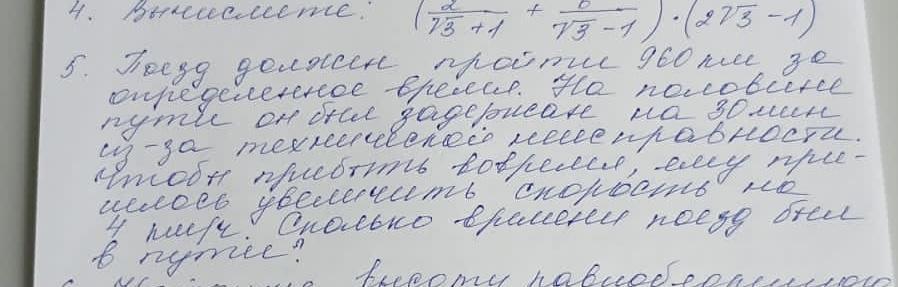 4. Вычислите: (2/√3+1 + /√3-1)·(2√3-1)
5. Поезд должен пройти 960 км за
определенное время. На половине
пути он был задержан на 30 мин
из-за технической неисправности.
Чтобы прибыть вовремя, ему при-
шлось увеличить скорость на
4 км/ч. Сколько времени поезд был
в пути?
высоту равнобедренного